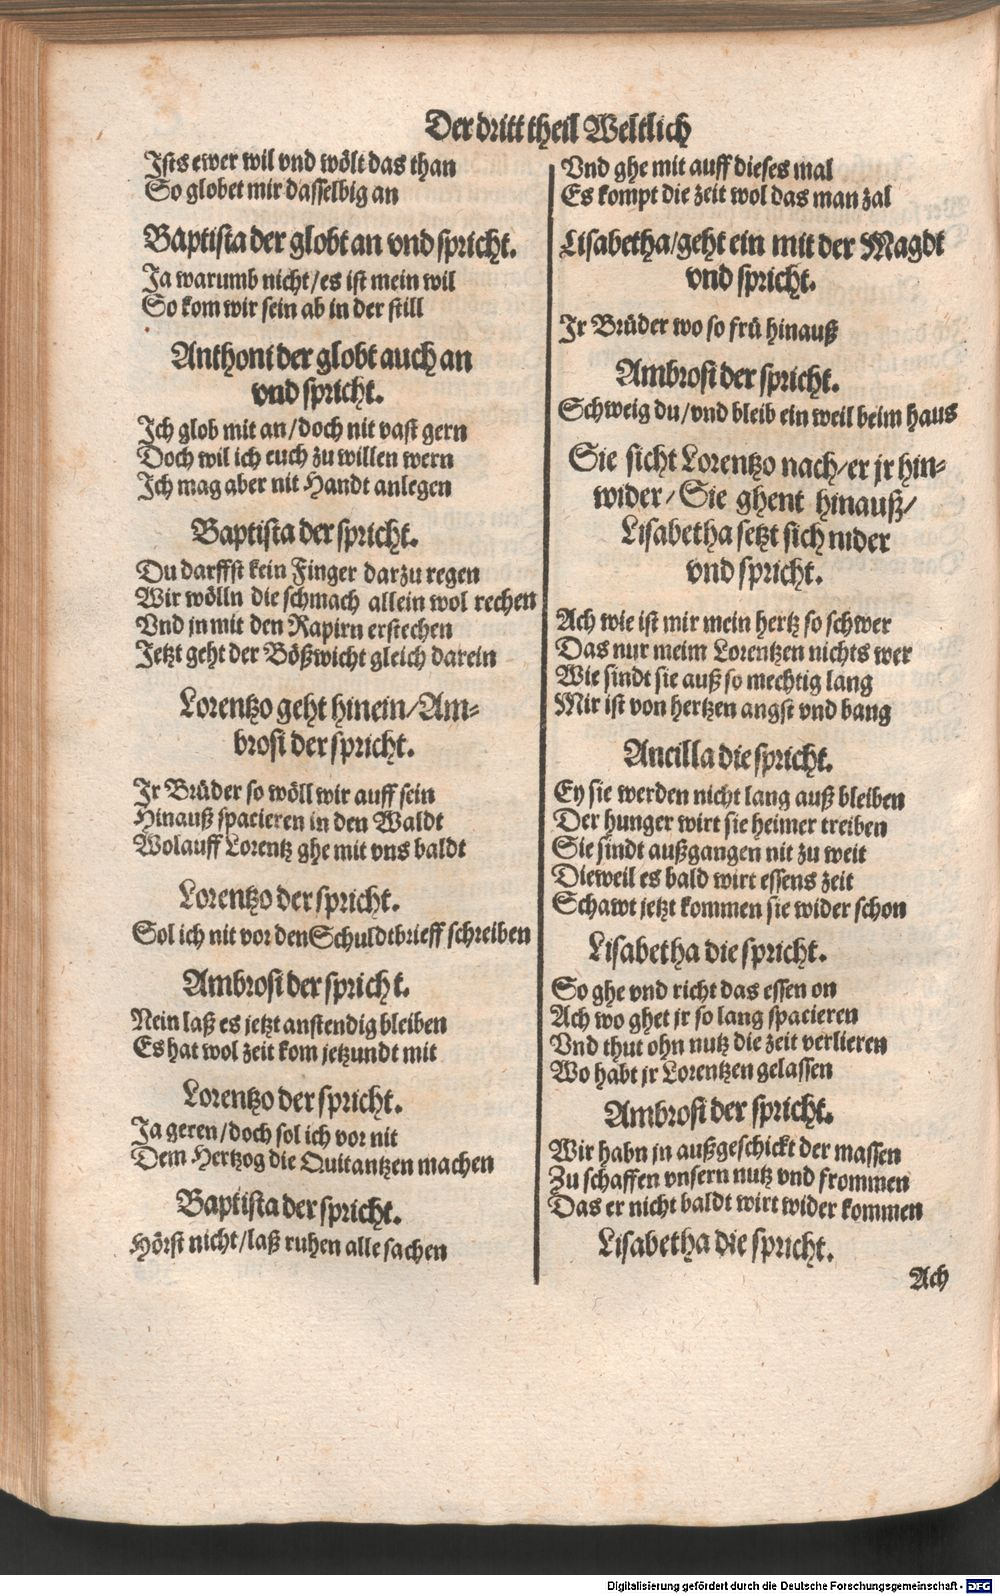 Der dritt theil Weltlich
Ists ewer wil vnd wölt das than
So globet mir dasselbig an
Baptista der globt an vnd spricht.
Ja warumb nicht/es ist mein wil
So kom wir sein ab in der still
Anthoni der globt auch an
vnd spricht.
Ich glob mit an/doch nit vast gern
Doch wil ich euch zu willen wern
Ich mag aber nit Handt anlegen
Baptista der spricht.
Du darffst kein Finger darzu regen
Wir wölln die schmach allein wol rechen
Vnd jn mit den Rapirn erstechen
Jetzt geht der Bößwicht gleich darein
Lorentzo geht hinein/Am-
brosi der spricht.
Jr Brüder so wöll wir auff sein
Hinauß spacieren in den Waldt
Wolauff Lorentz ghe mit vns baldt
Lorentzo der spricht.
Sol ich nit vor den Schuldtbrieff schreiben
Ambrosi der spricht.
Nein laß es jetzt anstendig bleiben
Es hat wol zeit kom jetzundt mit
Lorentzo der spricht.
Ja geren/doch sol ich vor nit
Dem Hertzog die Quitantzen machen
Baptista der spricht.
Hörst nicht/laß ruhen alle sachen
Vnd ghe mit auff dieses mal
Es kompt die zeit wol das man zal
Lisabetha/geht ein mit der Magdt
vnd spricht.
Jr Brüder wo so frü hinauß
Ambrosi der spricht.
Schweig du/vnd bleib ein weil beim haus
Sie sicht Lorentzo nach/er jr hin-
wider/Sie ghent hinauß/
Lisabetha setzt sich nider
vnd spricht.
Ach wie ist mir mein hertz so schwer
Das nur meim Lorentzen nichts wer
Wie sindt sie auß so mechtig lang
Mir ist von hertzen angst vnd bang
Ancilla die spricht.
Ey sie werden nicht lang auß bleiben
Der hunger wirt sie heimer treiben
Sie sindt außgangen nit zu weit
Dieweil es bald wirt essens zeit
Schawt jetzt kommen sie wider schon
Lisabetha die spricht.
So ghe vnd richt das essen on
Ach wo ghet jr so lang spacieren
Vnd thut ohn nutz die zeit verlieren
Wo habt jr Lorentzen gelassen
Ambrosi der spricht.
Wir habn jn außgeschickt der massen
Zu schaffen vnsern nutz vnd frommen
Das er nicht baldt wirt wider kommen
Lisabetha die spricht.
Ach
Digitalisierung gefördert durch die Deutsche Forschungsgemeinschaft - DFG